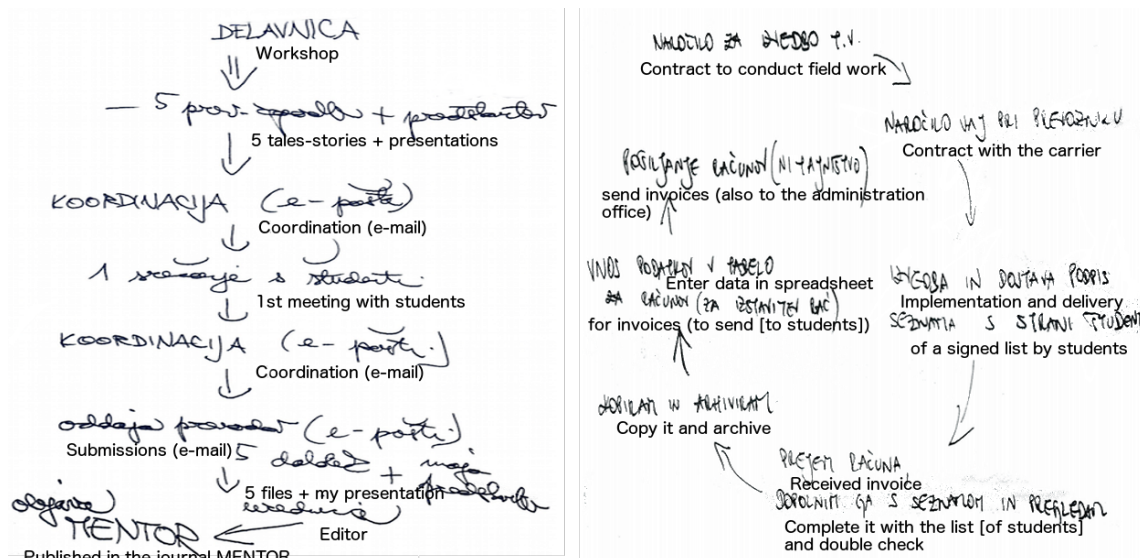 DELAVNICA
Workshop
5 + 
5 tales-stories + presentations
KOORDINACIJA (e-pošta)
Coordination (e-mail)
1 srečanje s študenti
1st meeting with students
KOORDINACIJA (e-pošti)
Coordination (e-mail)
oddaja (e-pošti)
Submissions (e-mail)
5 + moja
5 files + my presentation
objava
Editor
MENTOR
Published in the journal MENTOR
NAROČILO ZA IZVEDBO T.V.
Contract to conduct field work
NAROČILO VAJ PRI PREVOZNIKU
Contract with the carrier
IZVEDBA IN DOSTAVA PODPIS
Implementation and delivery
SEZNAMA S STRANI ŠTUDENT
of a signed list by students
PREJEM RAČUNA,
Received invoice
DOPOLNIM GA S SEZNAMOM IN PREGLEDAM
Complete it with the list [of students]
and double check
KOPIRAM IN ARHIVIRAM
Copy it and archive
VNOS PODATKOV V TABELO
Enter data in spreadsheet
ZA RAČUNOV (ZA IZSTAVITEV RAČ)
for invoices (to send [to students])
POŠILJANJE RAČUNOV (NI TAJNIŠTVO)
send invoices (also to the administration
office)